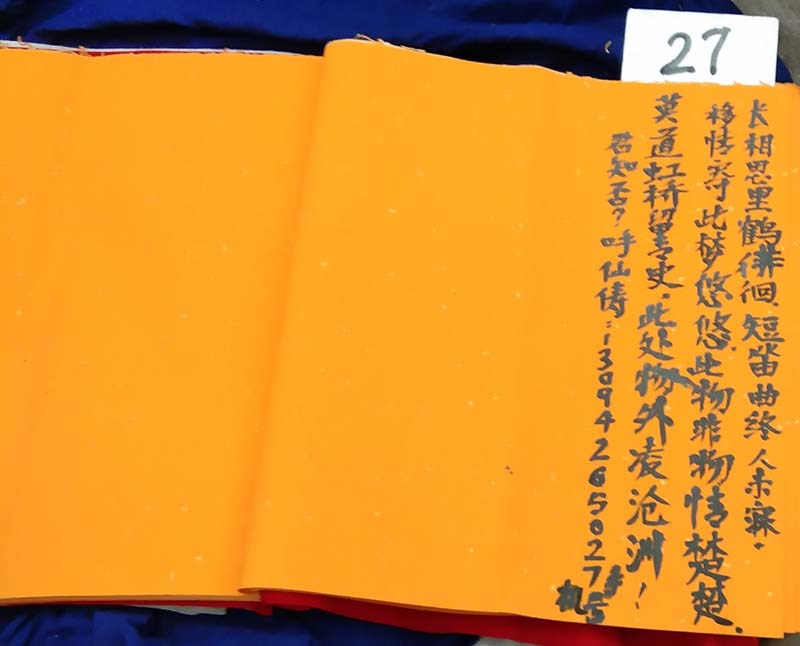 27
长相思里鹤徘徊.短笛曲终人未寐.
移情寻此梦悠悠.此物非物情楚楚.
莫道虹桥留青史.此处物外凌沧洲!
君知否?呼仙俦:13094265027手机号